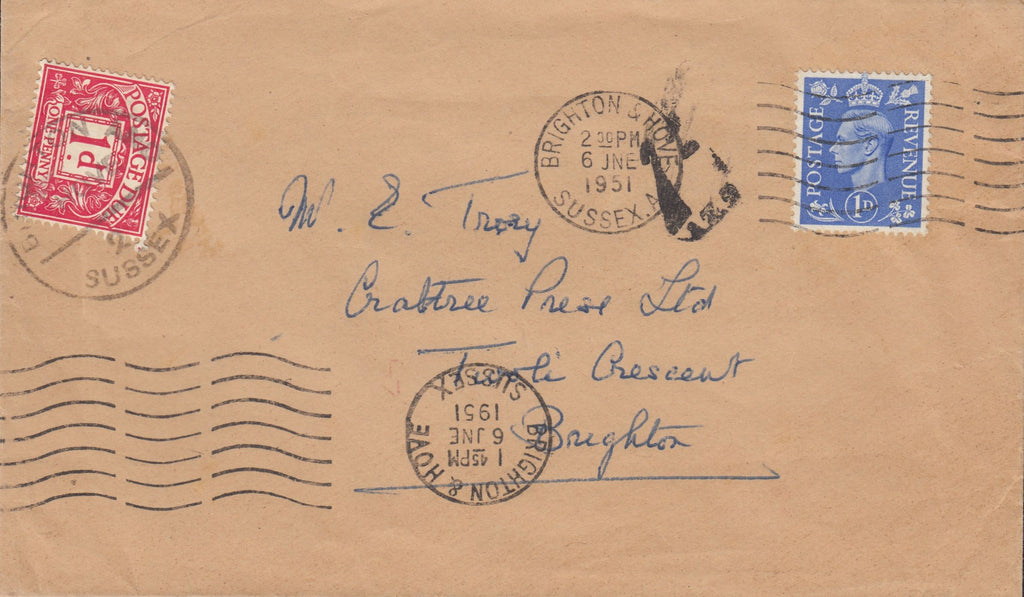 POSTAGE DUE
1d.
ONE PENNY
SUSSEX
BRIGHTON & HOVE
2 30 PM
6 JNE
1951
SUSSEX.A
POSTAGE
REVENUE
1D
M. E. Trory
Crabtree Press Ltd
Tivoli Crescent
Brighton
BRIGHTON & HOVE
1 45 PM
6 JNE
1951
SUSSEX